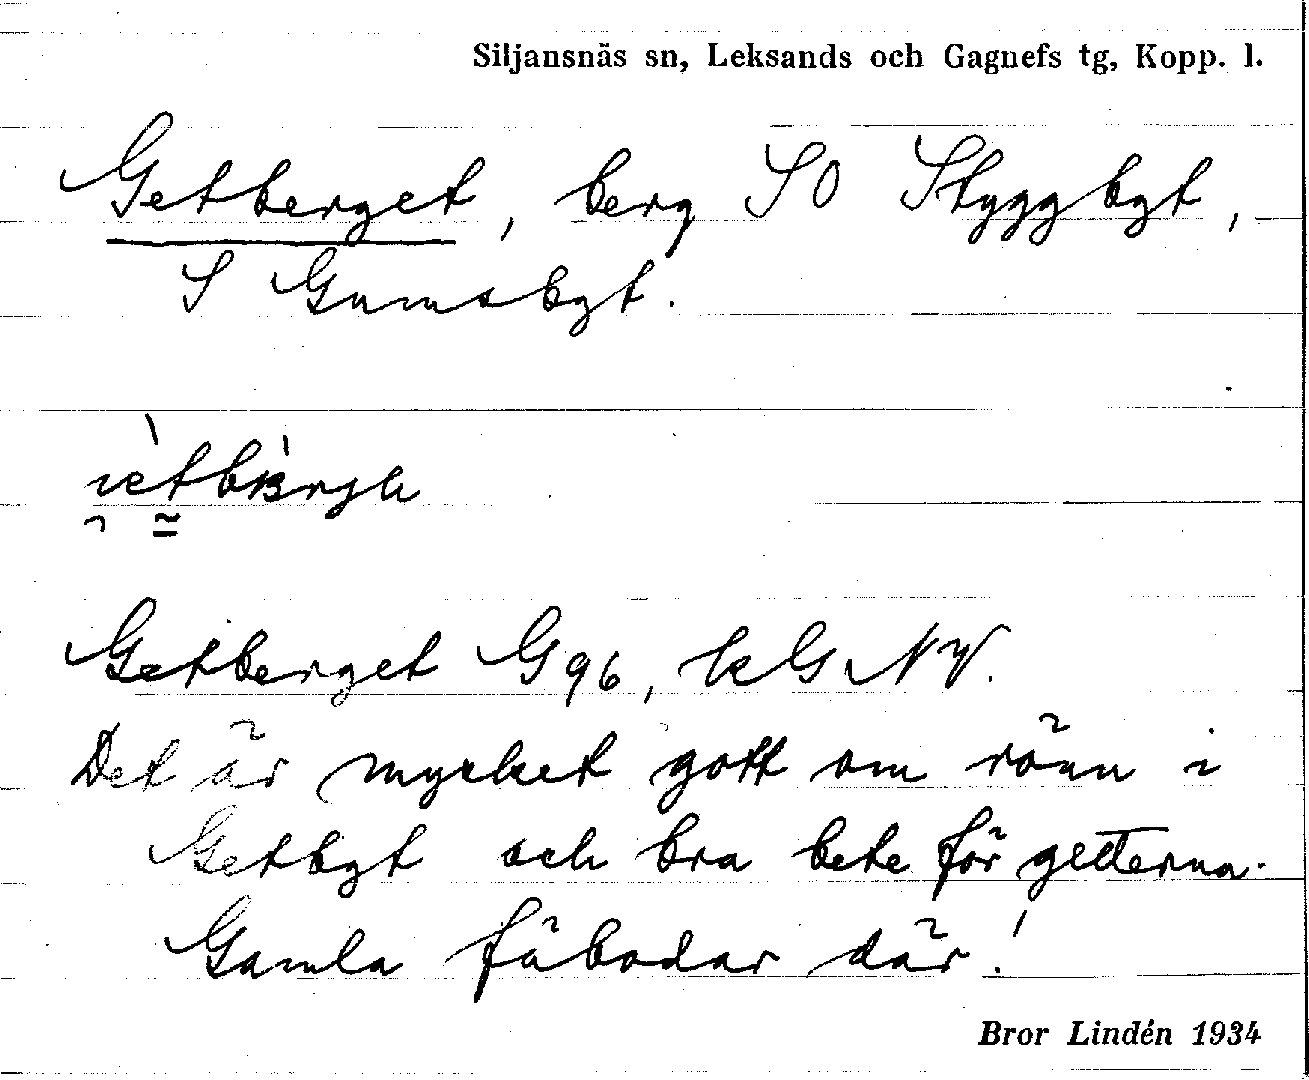 Siljansnäs sn, Leksands och Gagnefs tg, Kopp. l.
Getberget, berg SO Styggbgt,
S Gumsbgt.
Getberget G96, kGNV.
Det är mycket gott om rönn i
Getbgt och bra bete för getterna.
Gamla fäbodar där!
Bror Lindén 1934